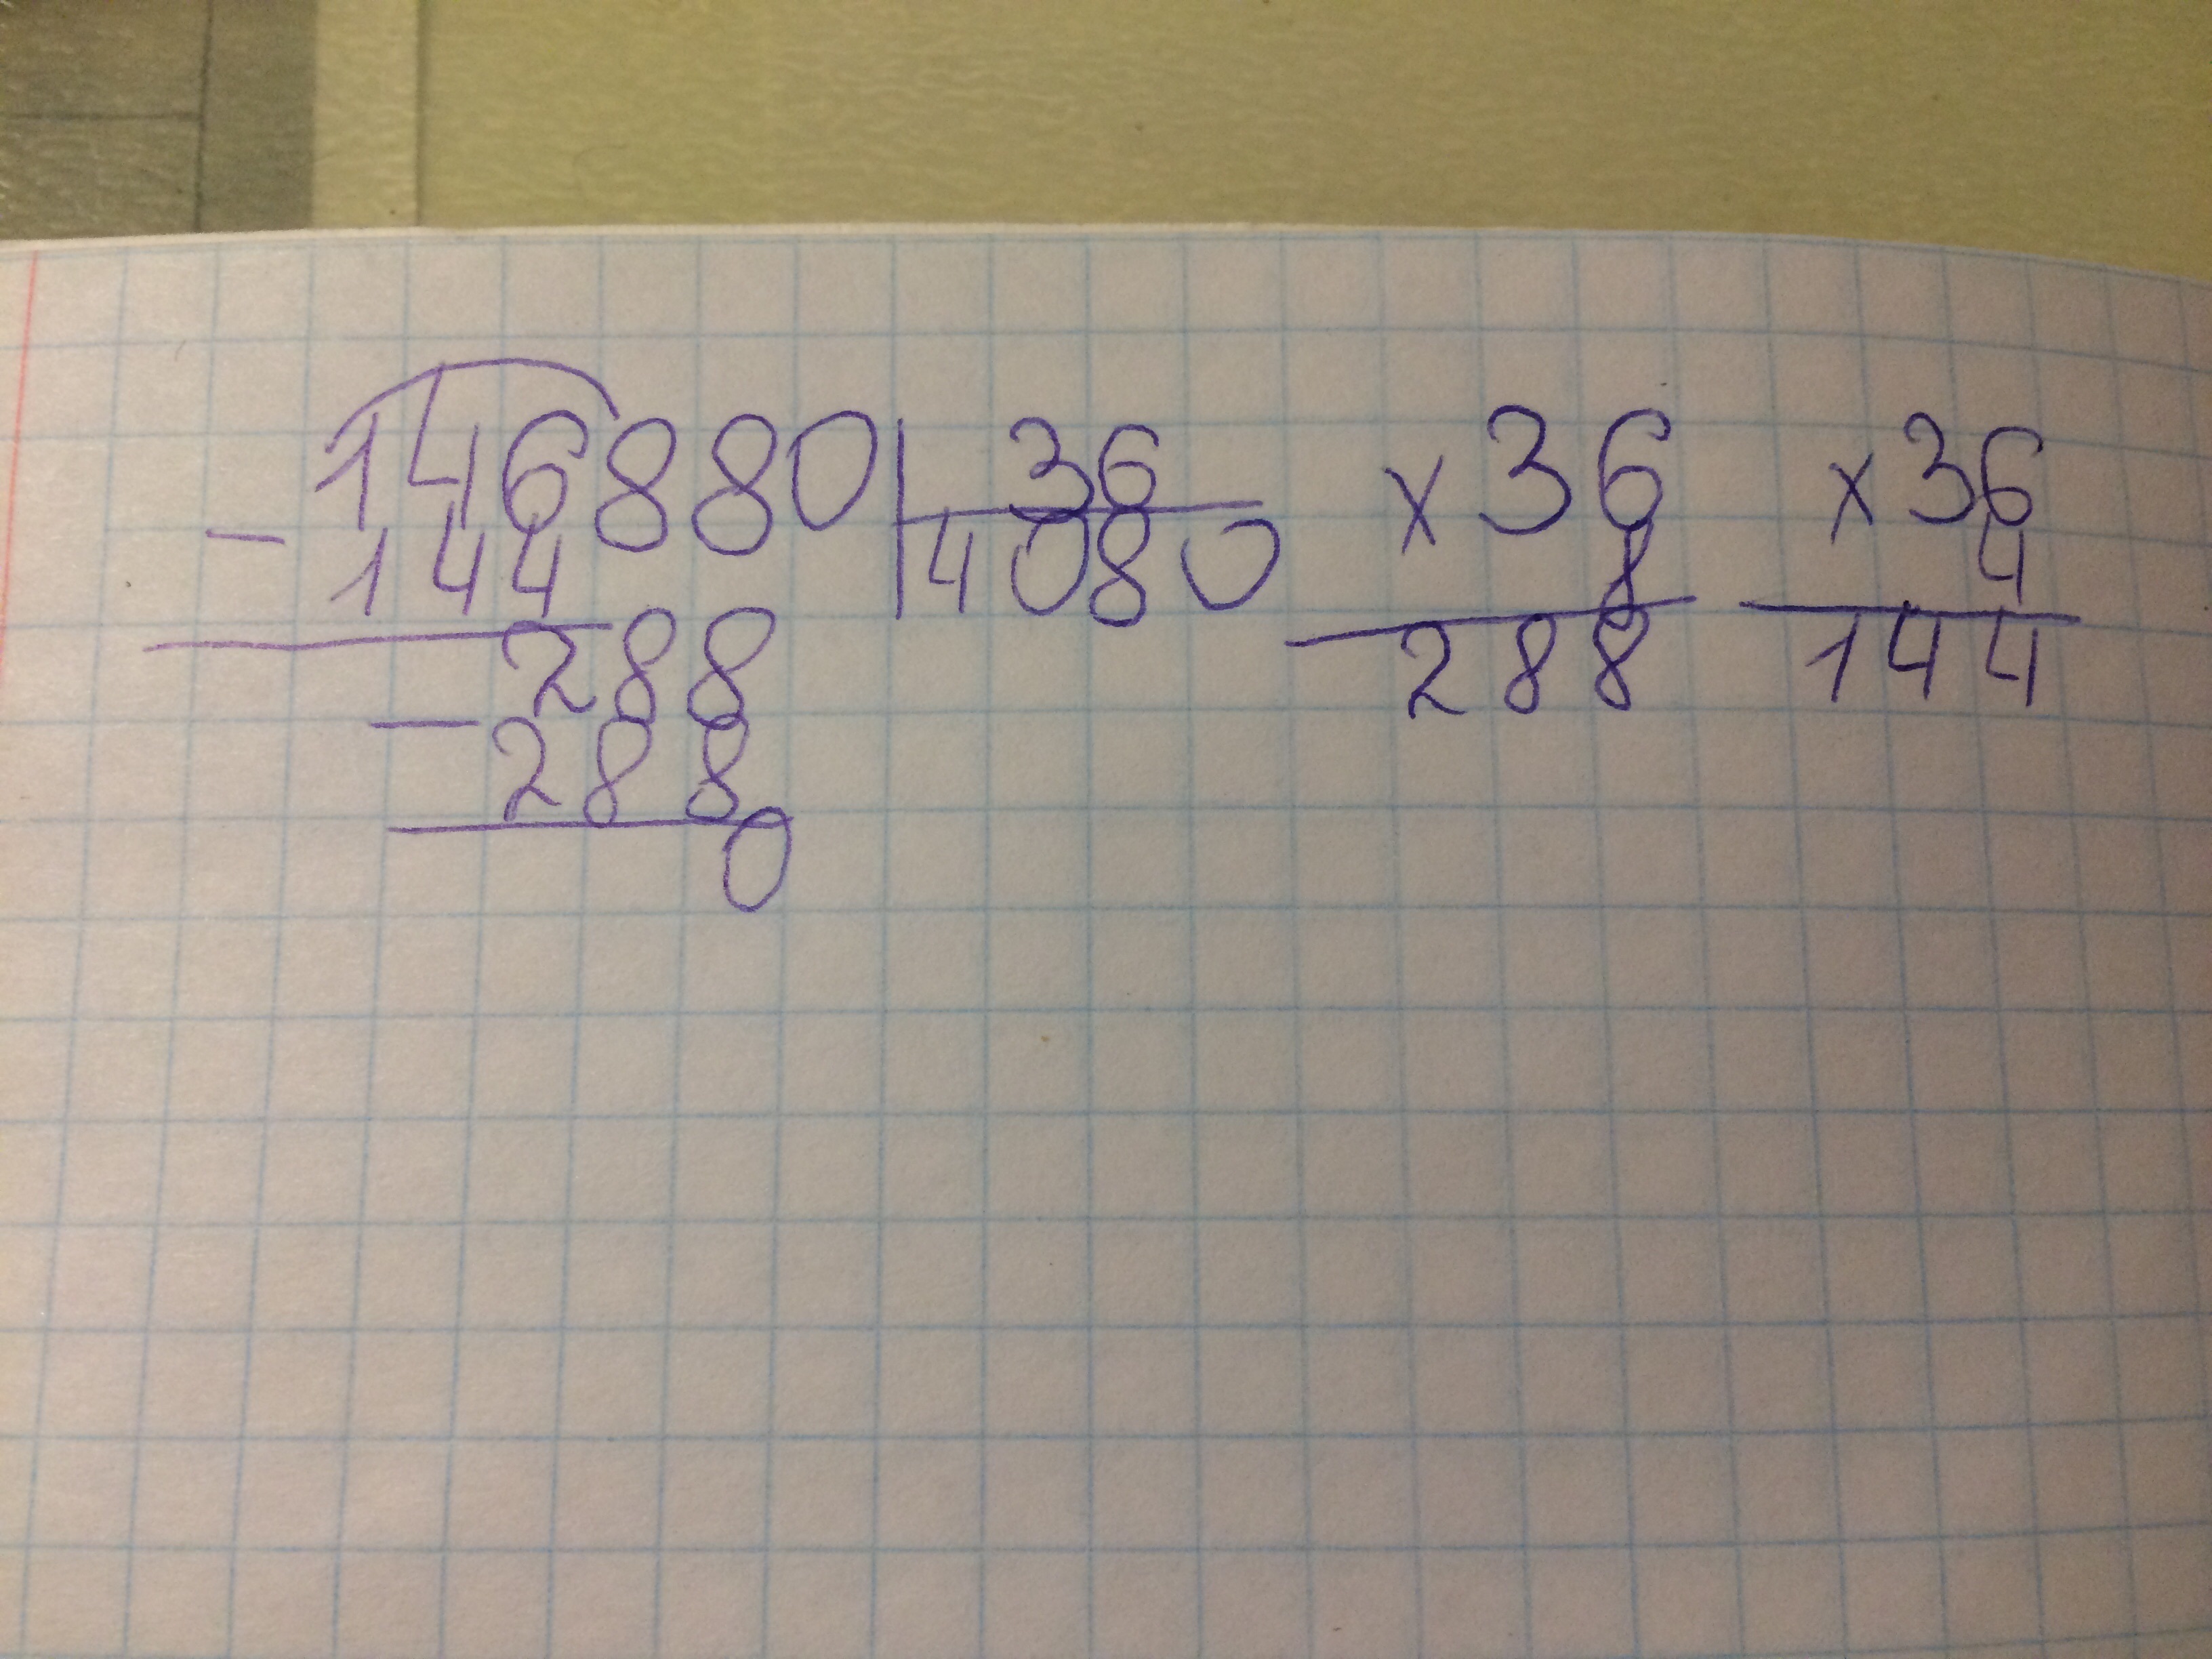 146880 36
- 144 4080
288
- 288
0
x 36
8
288
x 36
4
144